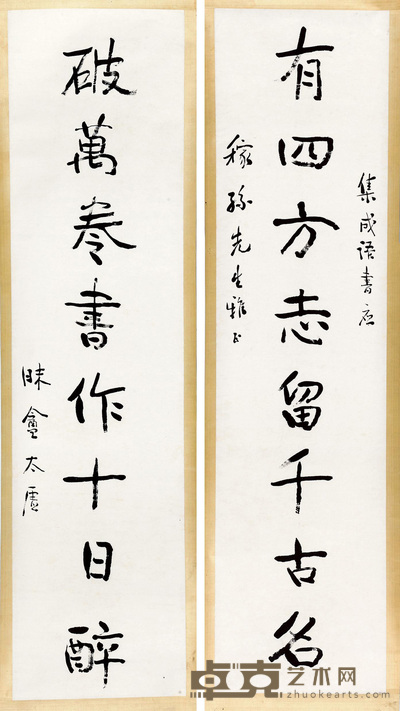 集成语書应
有四方志留千古名
稼孫先生雅正
破萬卷書作十日醉
太虛
卓克艺术网
zhuokearts.com